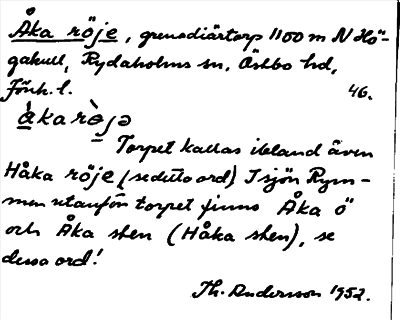 Åka röje, grenadiärtorp 1100 m N Hö-
gakull, Rydaholms sn, Östbo hd,
Jönk. l. 46.
àkarø̀jə
Torpet kallas ibland även
Håka röje (se detta ord) I sjön Rym-
men utanför torpet finns Åka ö
och Åka sten (Håka sten), se
dessa ord!
Th. Andersson 1952.